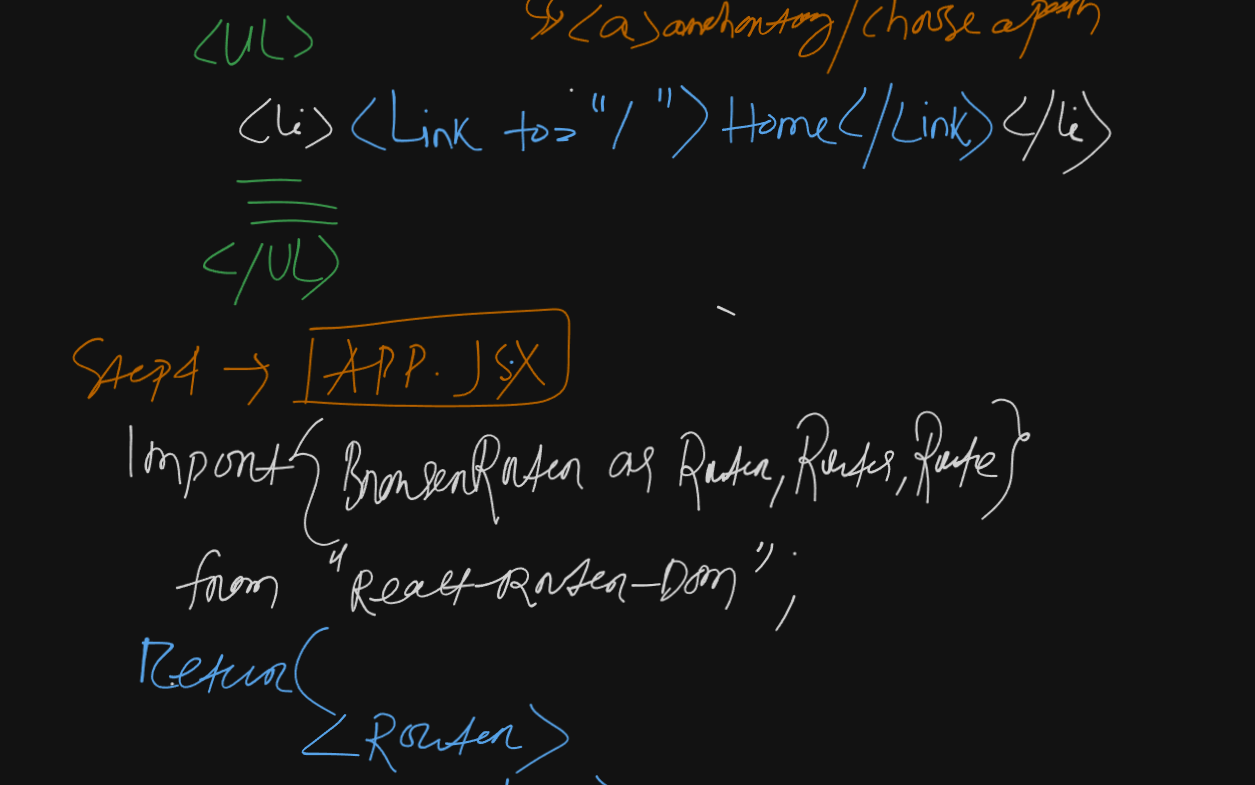 <UL>
→ <a> anchor tag / choose a path
<li> <Link to="/"> Home </Link> </li>
</UL>
Step4 → APP.JSX
Import { BrowserRouter as Router, Routes, Route }
from "React-Router-Dom";
Return (
<Router>